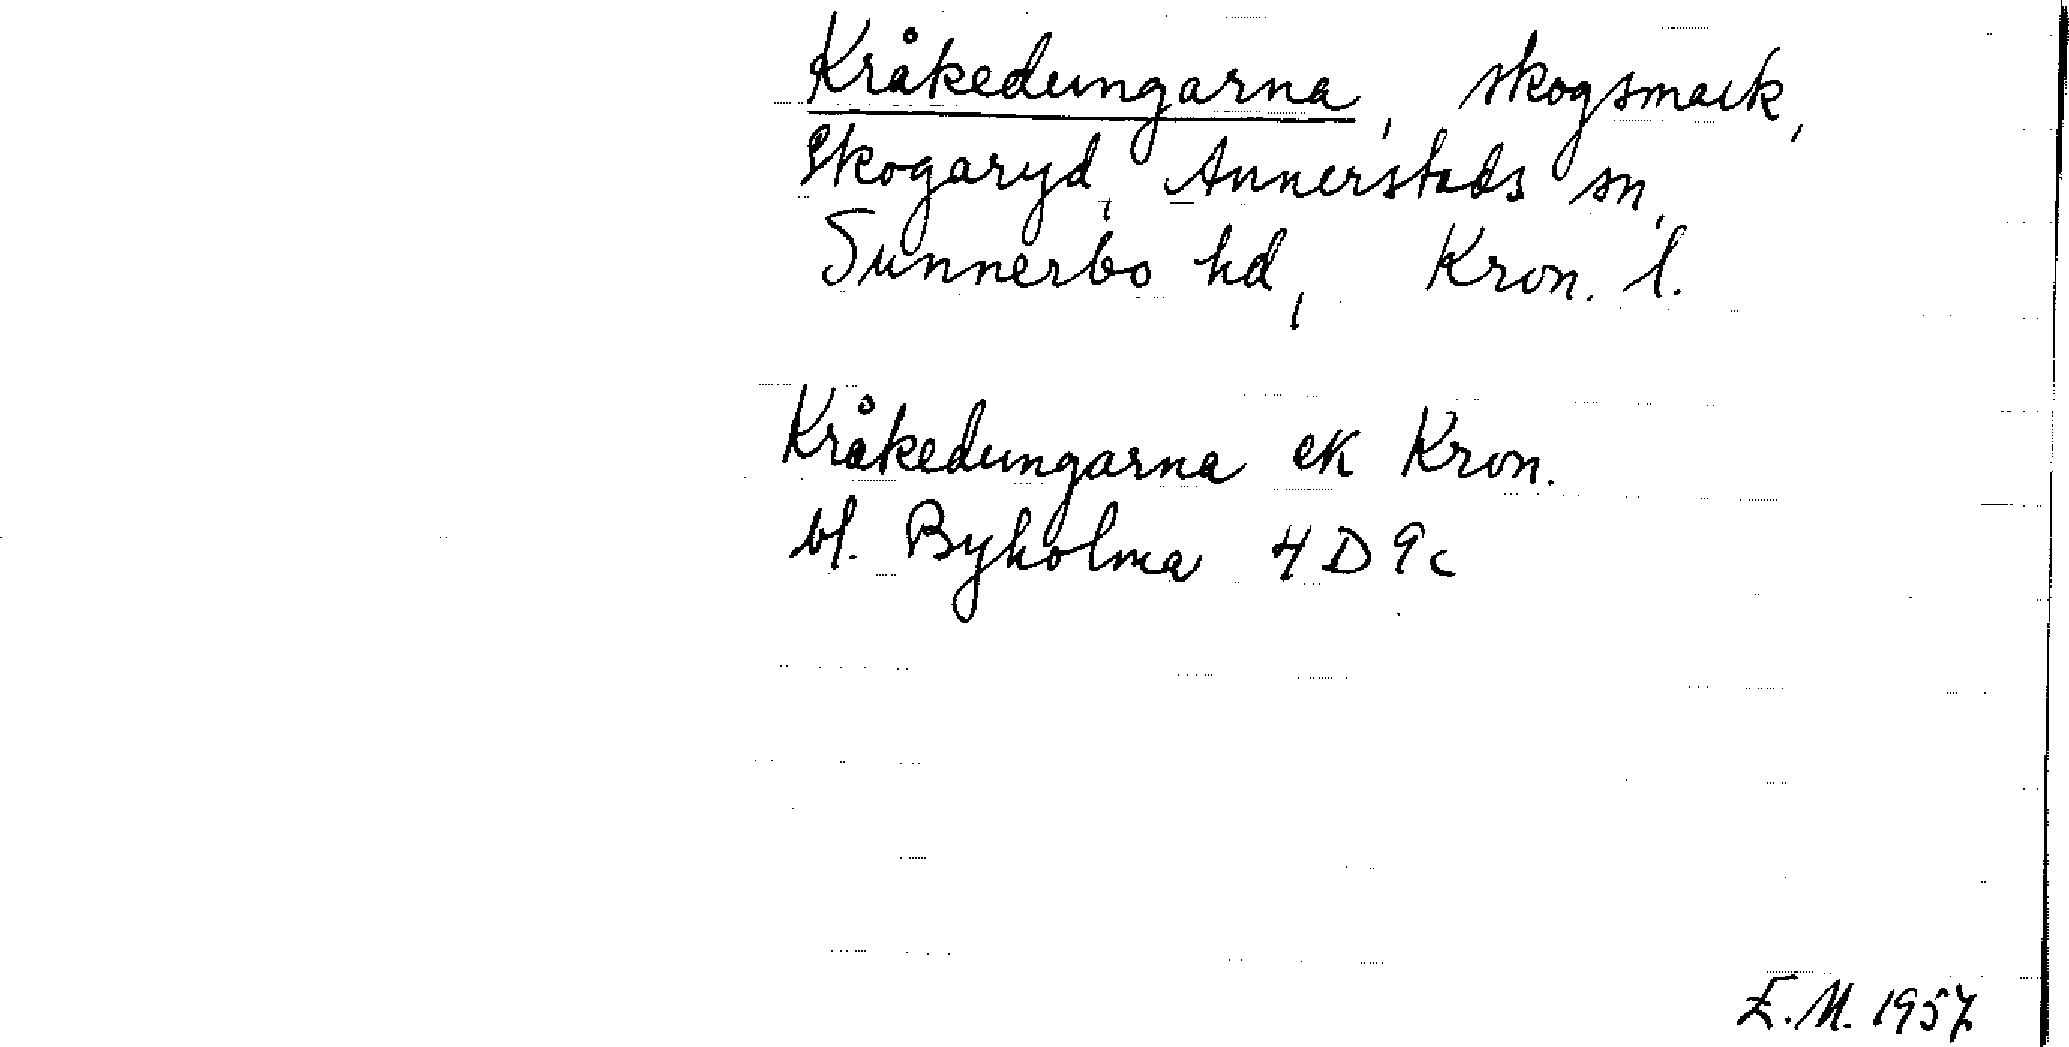 Kråkedungarna, skogsmark,
Skogaryd, Annerstads sn,
Sunnerbo hd, Kron. l.
Kråkedungarna ek Kron.
bl. Byholma 4 D 9c
E.M. 1957